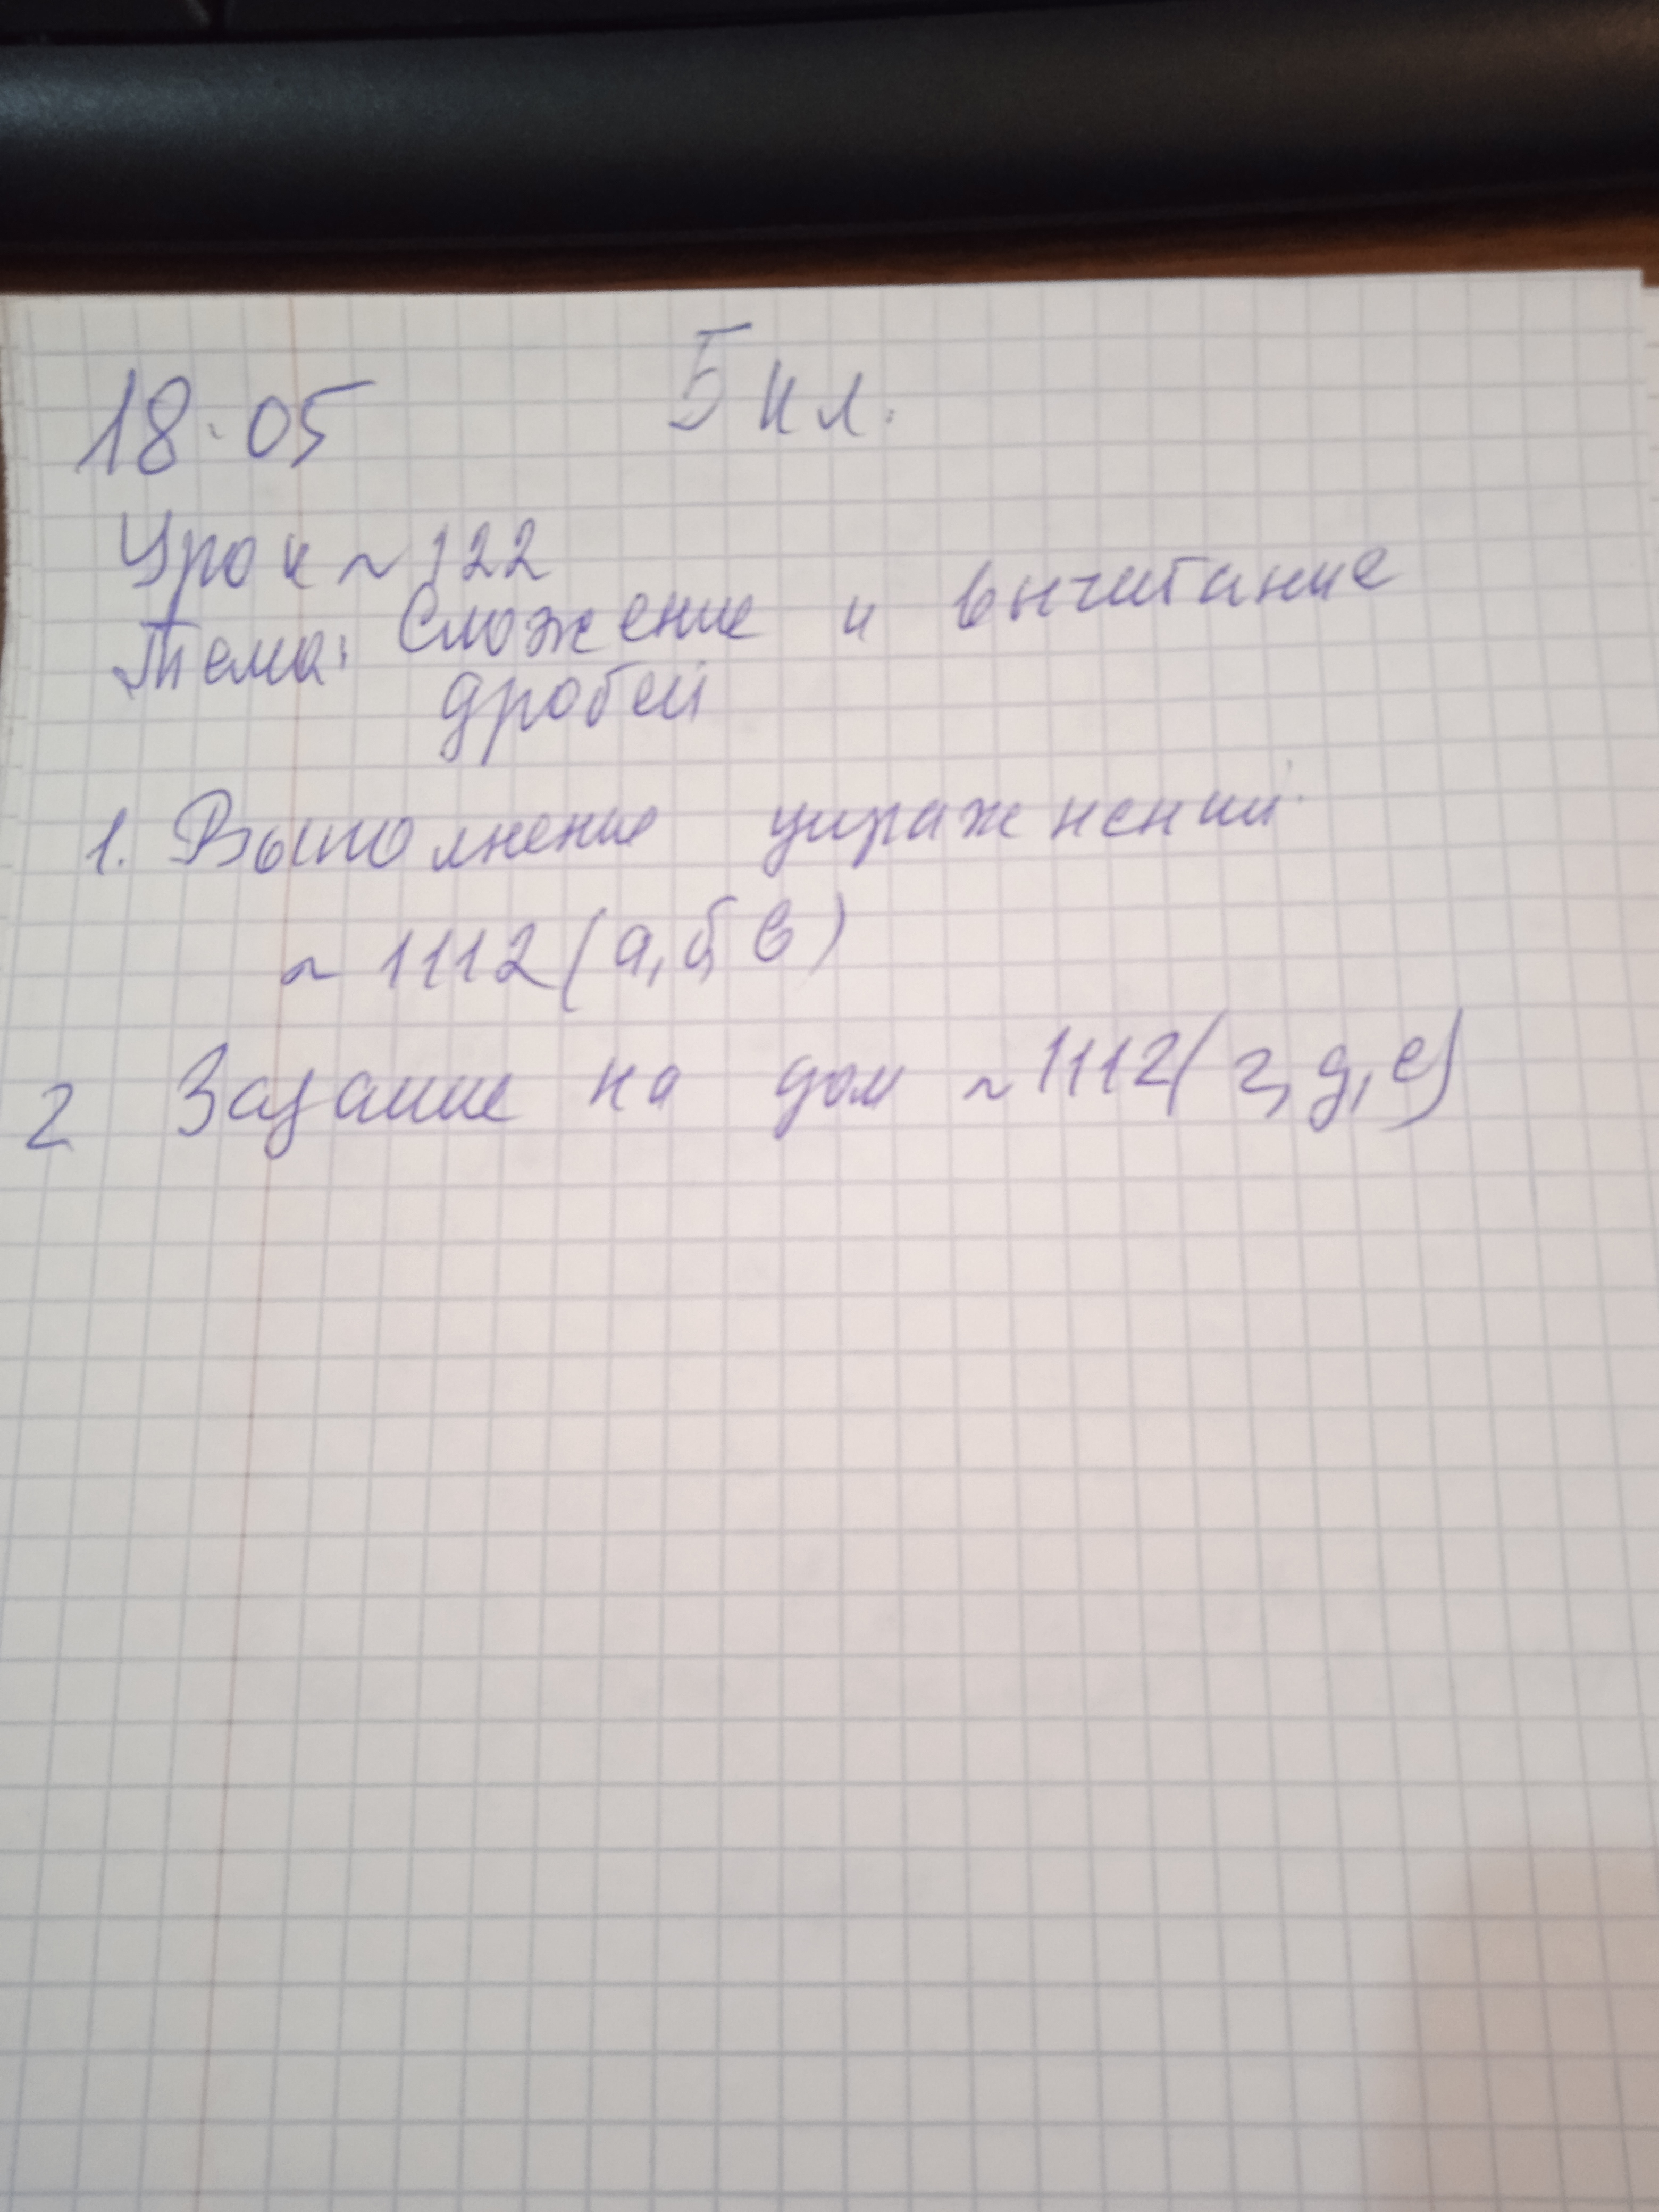 18.05 5 кл.
Урок ~ 122
Тема: Сложение и вычитание
дробей
1. Выполнение упражнений.
~ 1112 (а, б, в)
2 Задание на дом ~ 1112 (г, д, е)